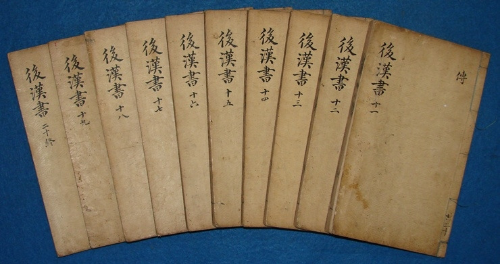 傳
後漢書 十一
後漢書 十二
後漢書 十三
後漢書 十四
後漢書 十五
後漢書 十六
後漢書 十七
後漢書 十八
後漢書 十九
後漢書 二十終